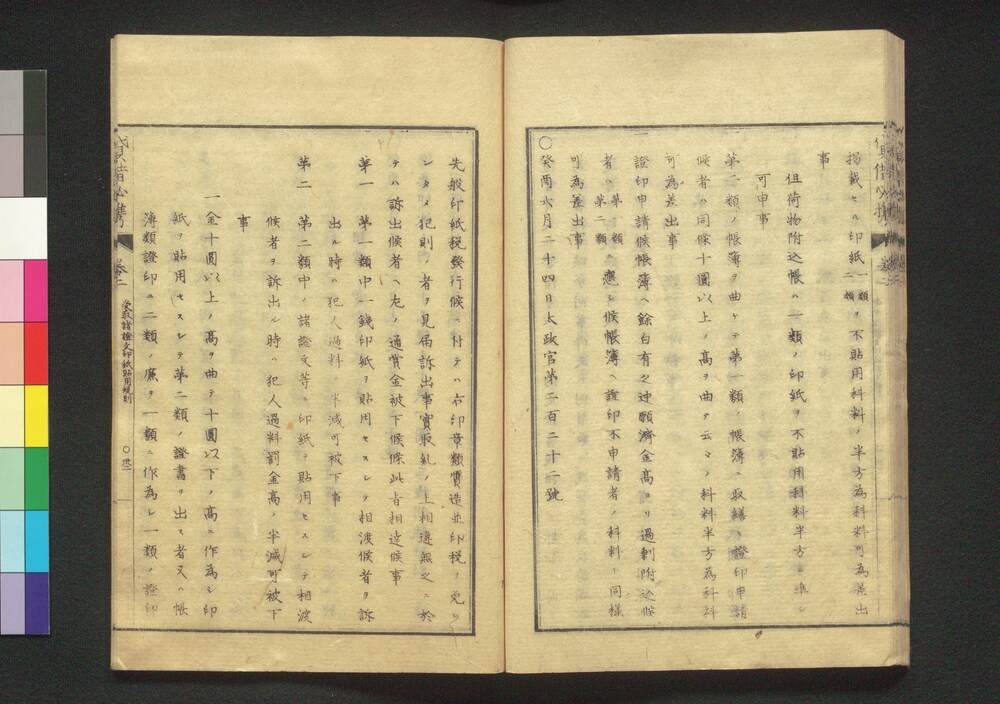 掲載セル印紙一類二類ヲ不貼用科料ノ半方為科料可為差出
事
但荷物附込帳ハ一類ノ印紙ヲ不貼用科料半方ニ準シ
可申事
第二類ノ帳簿ヲ曲ケテ第一類ノ帳簿ニ取繕ヒ證印申請
候者ハ同條十圓以上ノ高ヲ曲テ云々ノ科料半方為科料
可為差出事
證印申請候帳簿ヘ餘白有之迚願濟金高ヨリ過剰附込候
者ハ第一類第二類ニ應シ候帳簿ヘ證印不申請者ノ科料ト同様
可為差出事
〇癸酉六月二十四日太政官第二百二十二號
先般印紙税發行候ニ付テハ右印章類贋造並印税ヲ免レ
ンタメ犯則ノ者ヲ見届訴出事實取糺ノ上相違無之ニ於
テハ訴出候者ヘ左ノ通賞金被下候條此旨相達候事
第一 第一類中一錢印紙ヲ貼用セスシテ相渡候者ヲ訴
出ル時ハ犯人過料ノ半減可被下事
第二 第二類中ノ諸證文等ヘ印紙ヲ貼用セスシテ相渡
候者ヲ訴出ル時ハ犯人過料罰金高ノ半減可被下
事
一金十圓以上ノ高ヲ曲テ十圓以下ノ高ニ作為シ印
紙ヲ貼用セスシテ第二類ノ證書ヲ出シ者又ハ帳
簿類證印ニ二類ノ廉ヲ一類ニ作為シ一類ノ證印
卷二
受取諸證文印紙貼用規則
〇